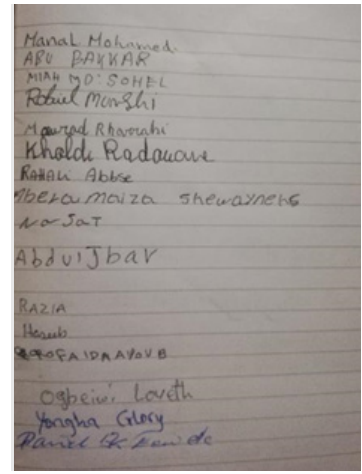 Manal Mohamed
ABU BAKKAR
MIAH MD: SOHEL
Robiul Munshi
Mourad Kharrubi
Kholde Radouane
RAHALI Abbse
Abera maiza shewayneh
NorSaT
Abdul Jbar
RAZIA
Haseeb
FAIDA AYOUB
Ogbeiwi Loveth
Yongha Glory
Daniel